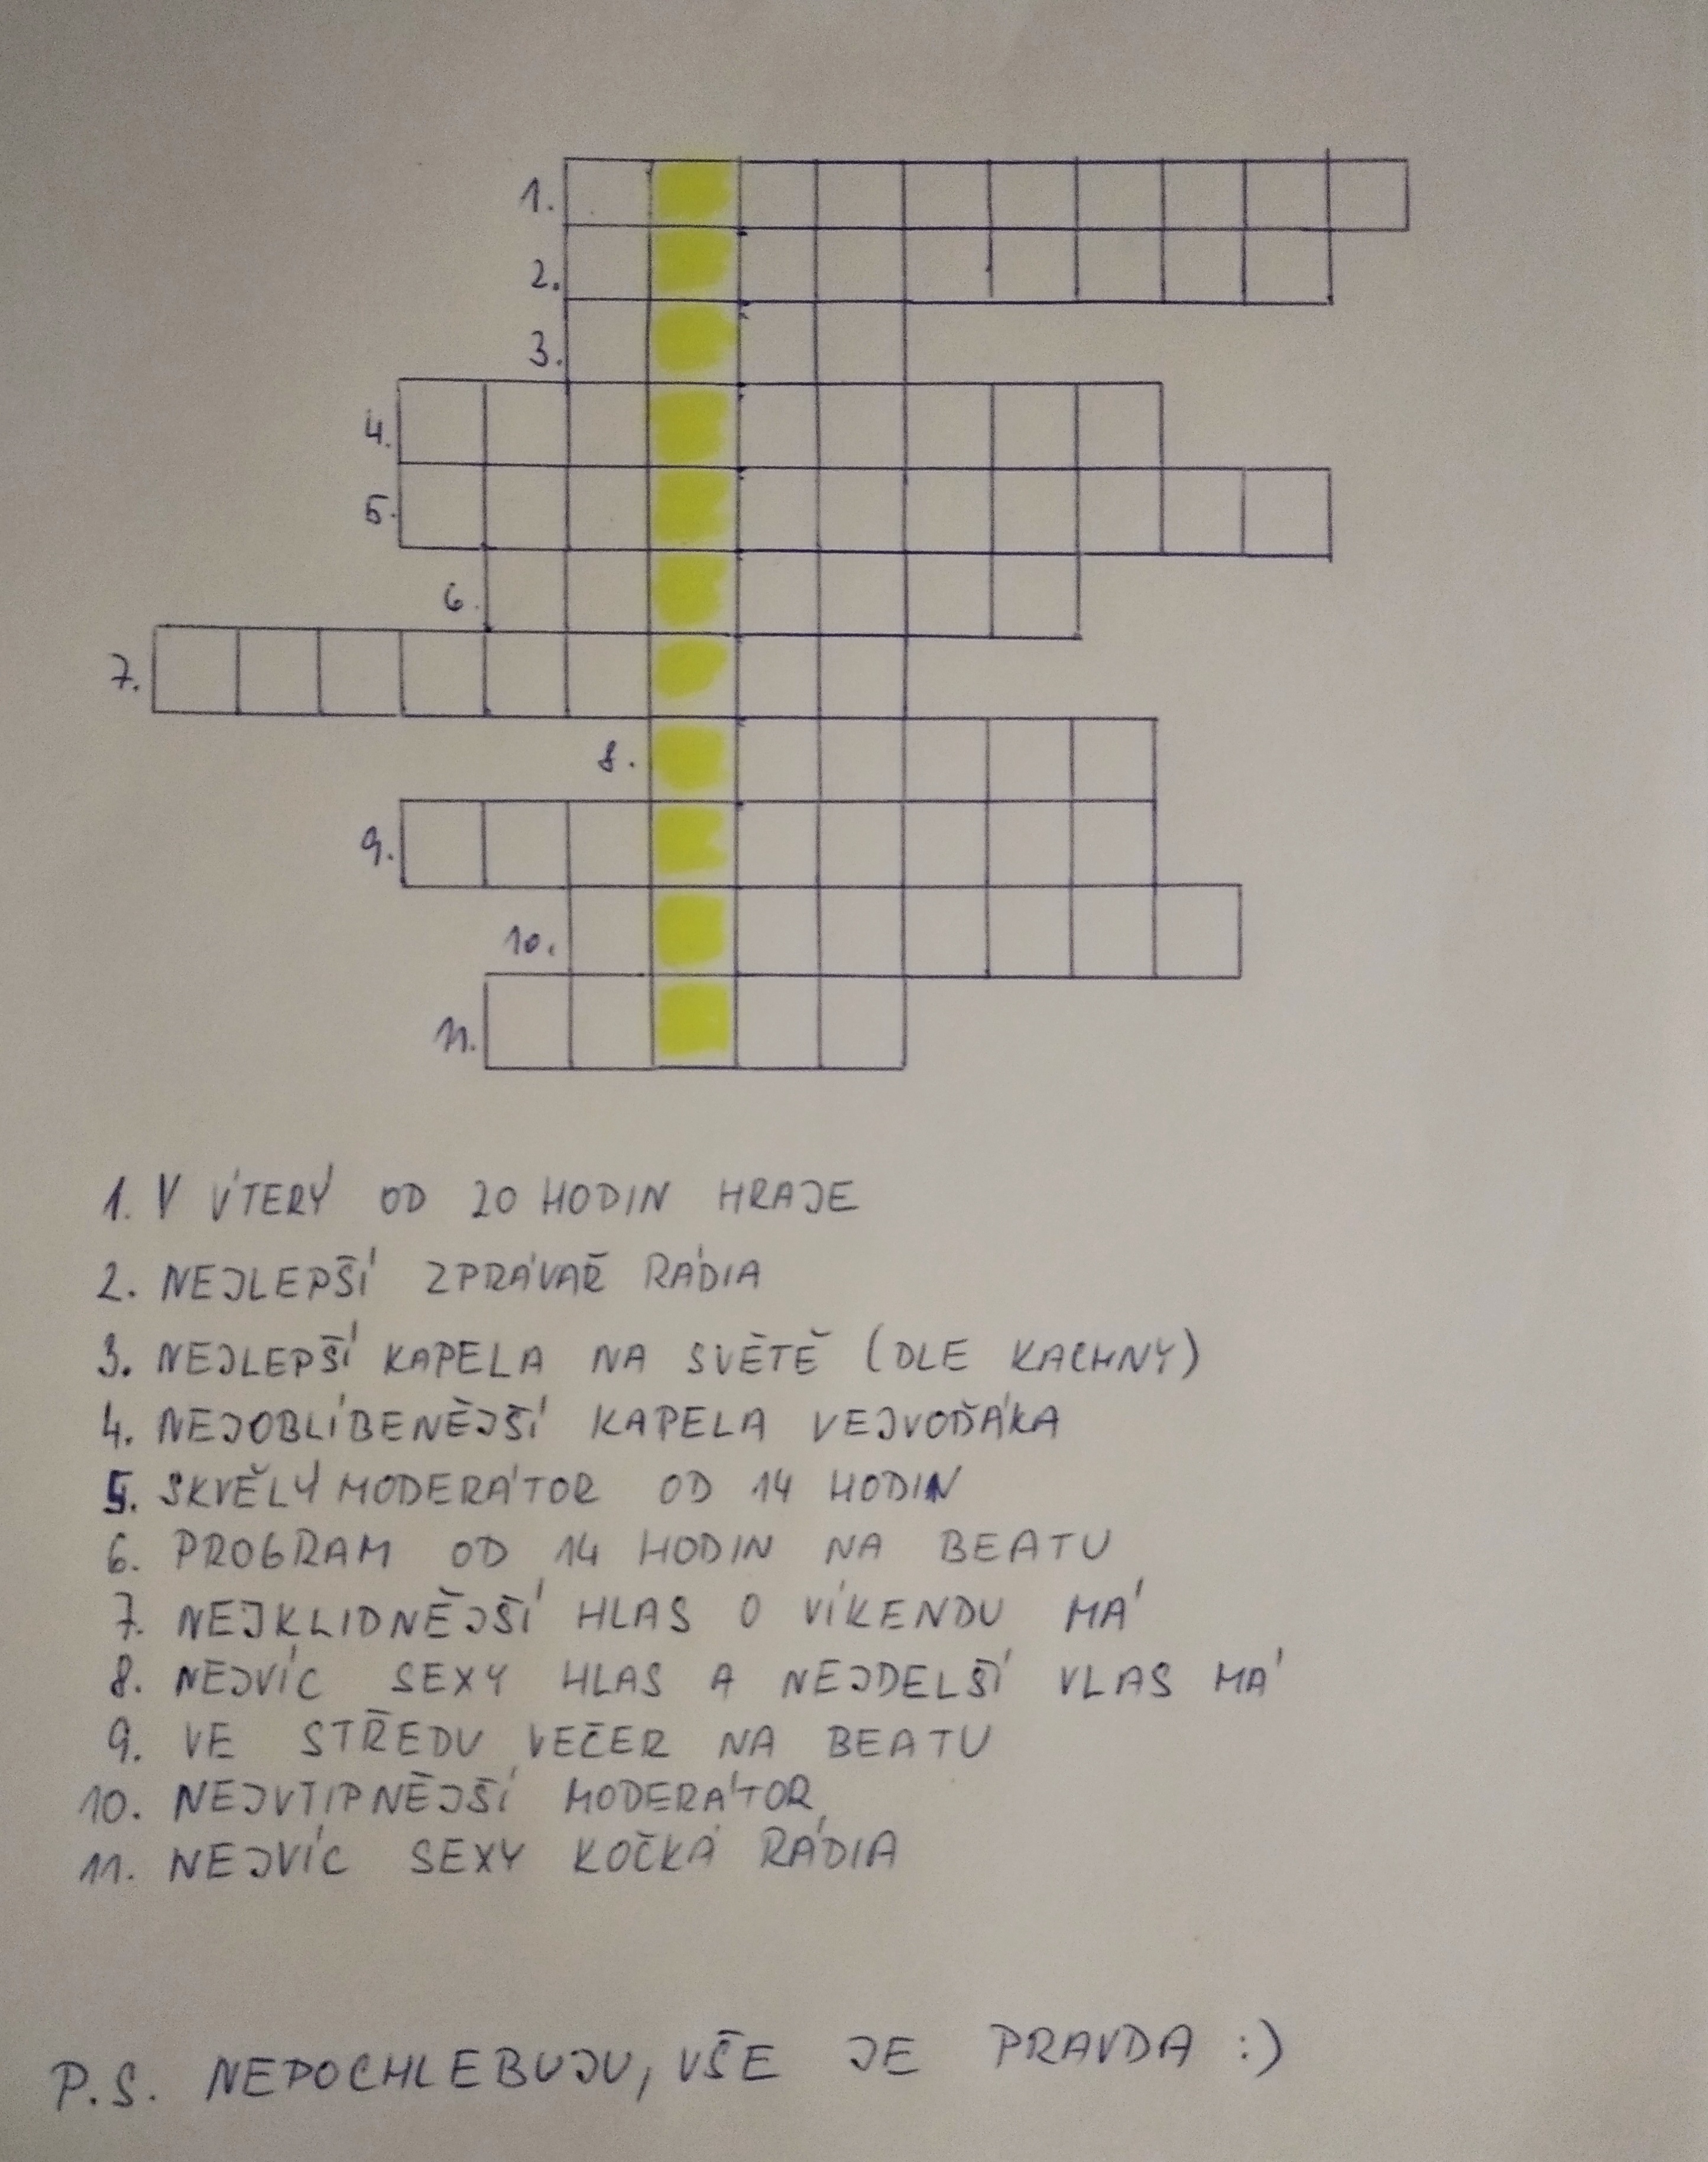 1.
2.
3.
4.
5.
6.
7.
8.
9.
10.
11.
1. V ÚTERÝ OD 20 HODIN HRAJE
2. NEJLEPŠÍ ZPRÁVAŘ RÁDIA
3. NEJLEPŠÍ KAPELA NA SVĚTĚ (DLE KACHNY)
4. NEJOBLÍBENĚJŠÍ KAPELA VEJVOĎÁKA
5. SKVĚLÝ MODERÁTOR OD 14 HODIN
6. PROGRAM OD 14 HODIN NA BEATU
7. NEJKLIDNĚJŠÍ HLAS O VÍKENDU MÁ
8. NEJVÍC SEXY HLAS A NEJDELŠÍ VLAS MÁ
9. VE STŘEDU VEČER NA BEATU
10. NEJVTIPNĚJŠÍ MODERÁTOR
11. NEJVÍC SEXY KOČKA RÁDIA
P.S. NEPOCHLEBUJU, VŠE JE PRAVDA :)